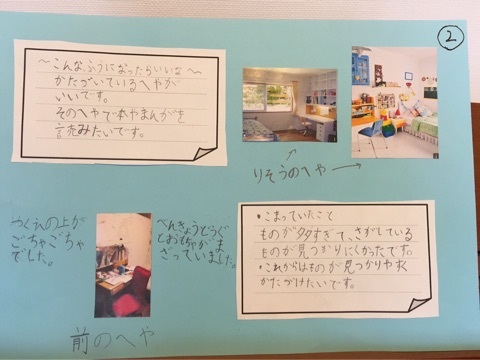 ②
～こんなふうになったらいいな～
かたづいているへやが
いいです。
そのへやで本やまんがを
読みたいです。
りそうのへや
つくえの上が
ごちゃごちゃ
でした。
べんきょうどうぐ
とおもちゃがま
ざっていました。
前のへや
・こまっていたこと
ものが多すぎて、さがしている
ものが見つかりにくかったです。
・これからはものが見つかりやすく
かたづけたいです。